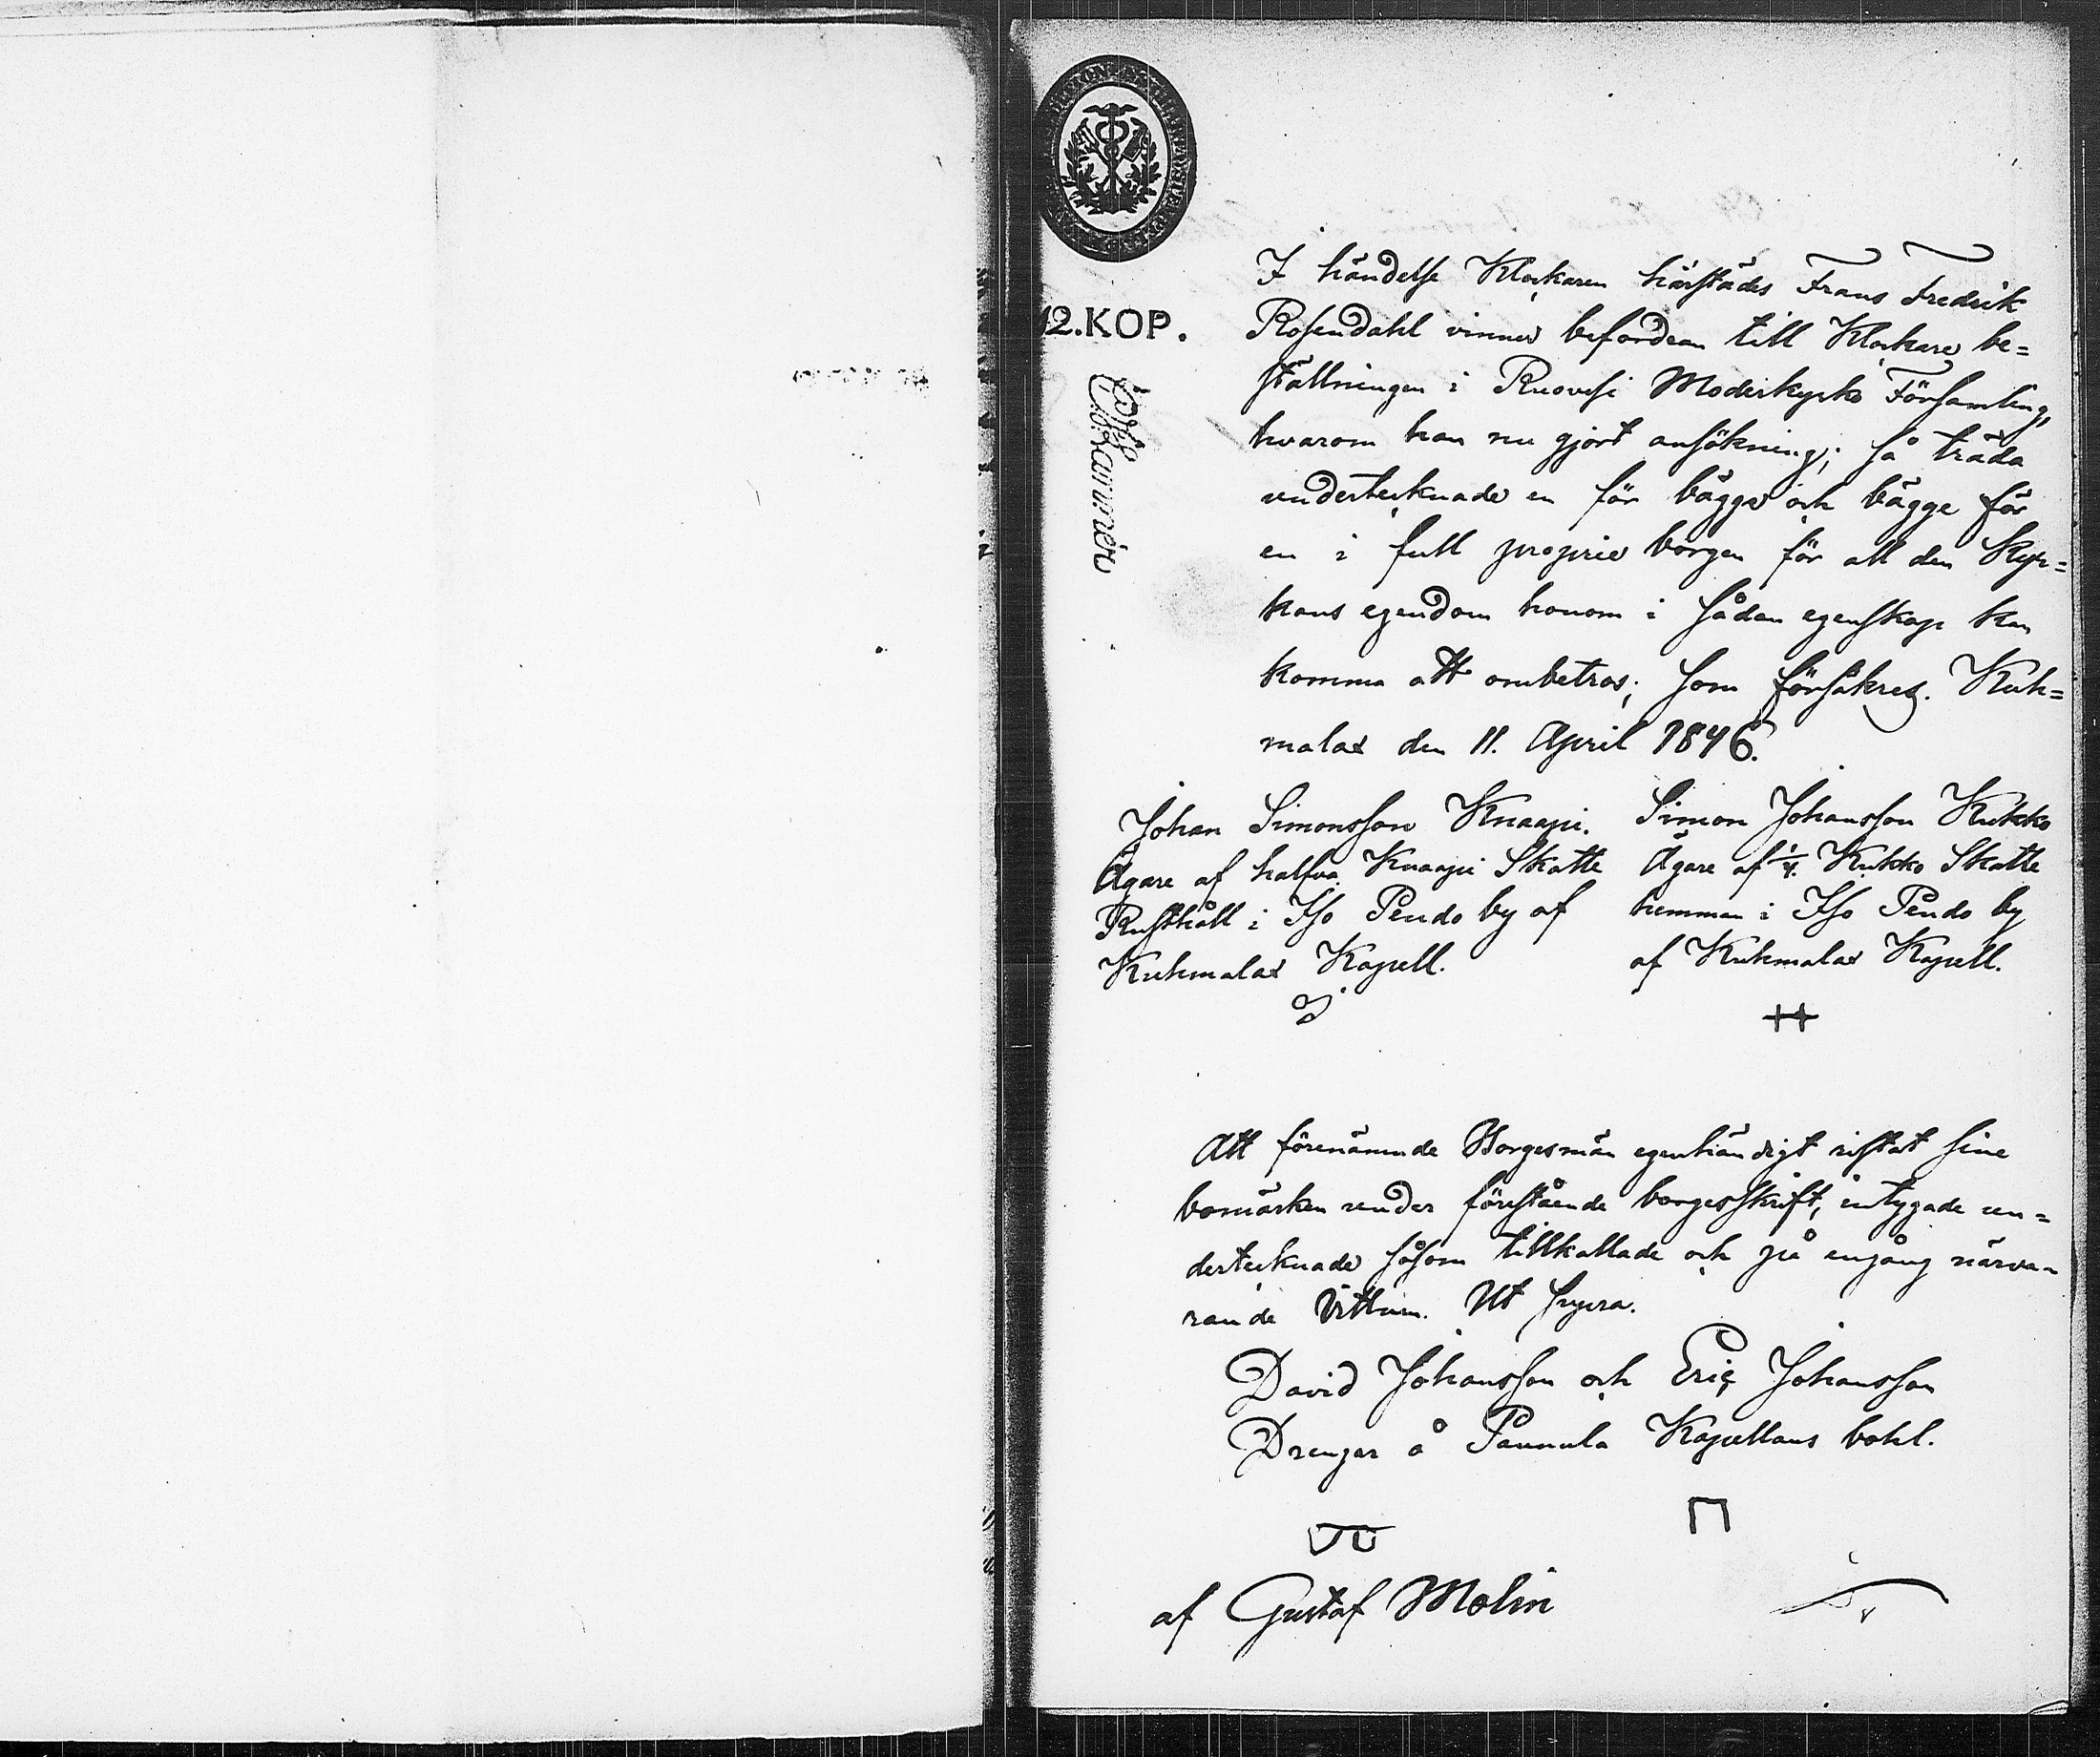 12.KOP.
I händelse Klockaren härstädes Frans Fredrik
Rosendahl vinner befordran till Klockare be=
ställningen i Ruovesi Moderkyrko Församling,
hvarom han nu gjort ansökning; så träda
undertecknade en för bägge och bägge för
en i full proprie borgen för all den Kyr=
kans egendom honom i sådan egenskap kan
komma att ombetros; som försäkres. Kuh=
malax den 11. April 1846.
Johan Simonsson Knaapi.
Ägare af halfva Knaapi Skatte
Rusthåll i Iso Pendo by af
Kuhmalax Kapell.
Simon Johansson Kukko
Ägare af 1/4. Kukko Skatte
hemman i Iso Pendo by
af Kuhmalax Kapell.
Att förenämnde Borgesmän egenhändigt ristat sine
bomärken under förestående borgesskrift, intygade un=
dertecknade såsom tillkallade och på engång närva=
rande Vittnen. Ut supra.
David Johansson och Eric Johansson
Drengar å Pannula Kapellans bohl.
af Gustaf Molin